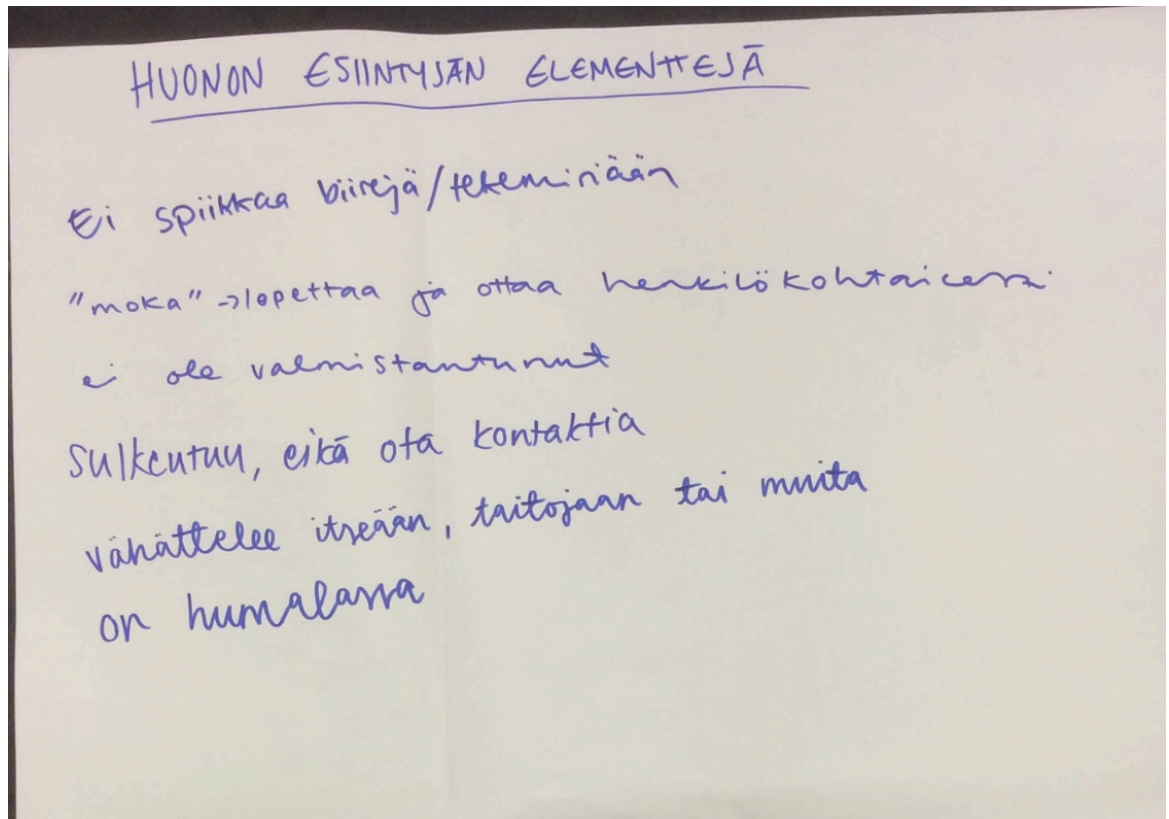 HUONON ESIINTYJÄN ELEMENTTEJÄ
Ei spiikkaa biisejä/tekemisiään
"moka" ->lopettaa ja ottaa henkilökohtaisesti
ei ole valmistautunut
Sulkeutuu, eikä ota kontaktia
vähättelee itseään, taitojaan tai muita
on humalassa